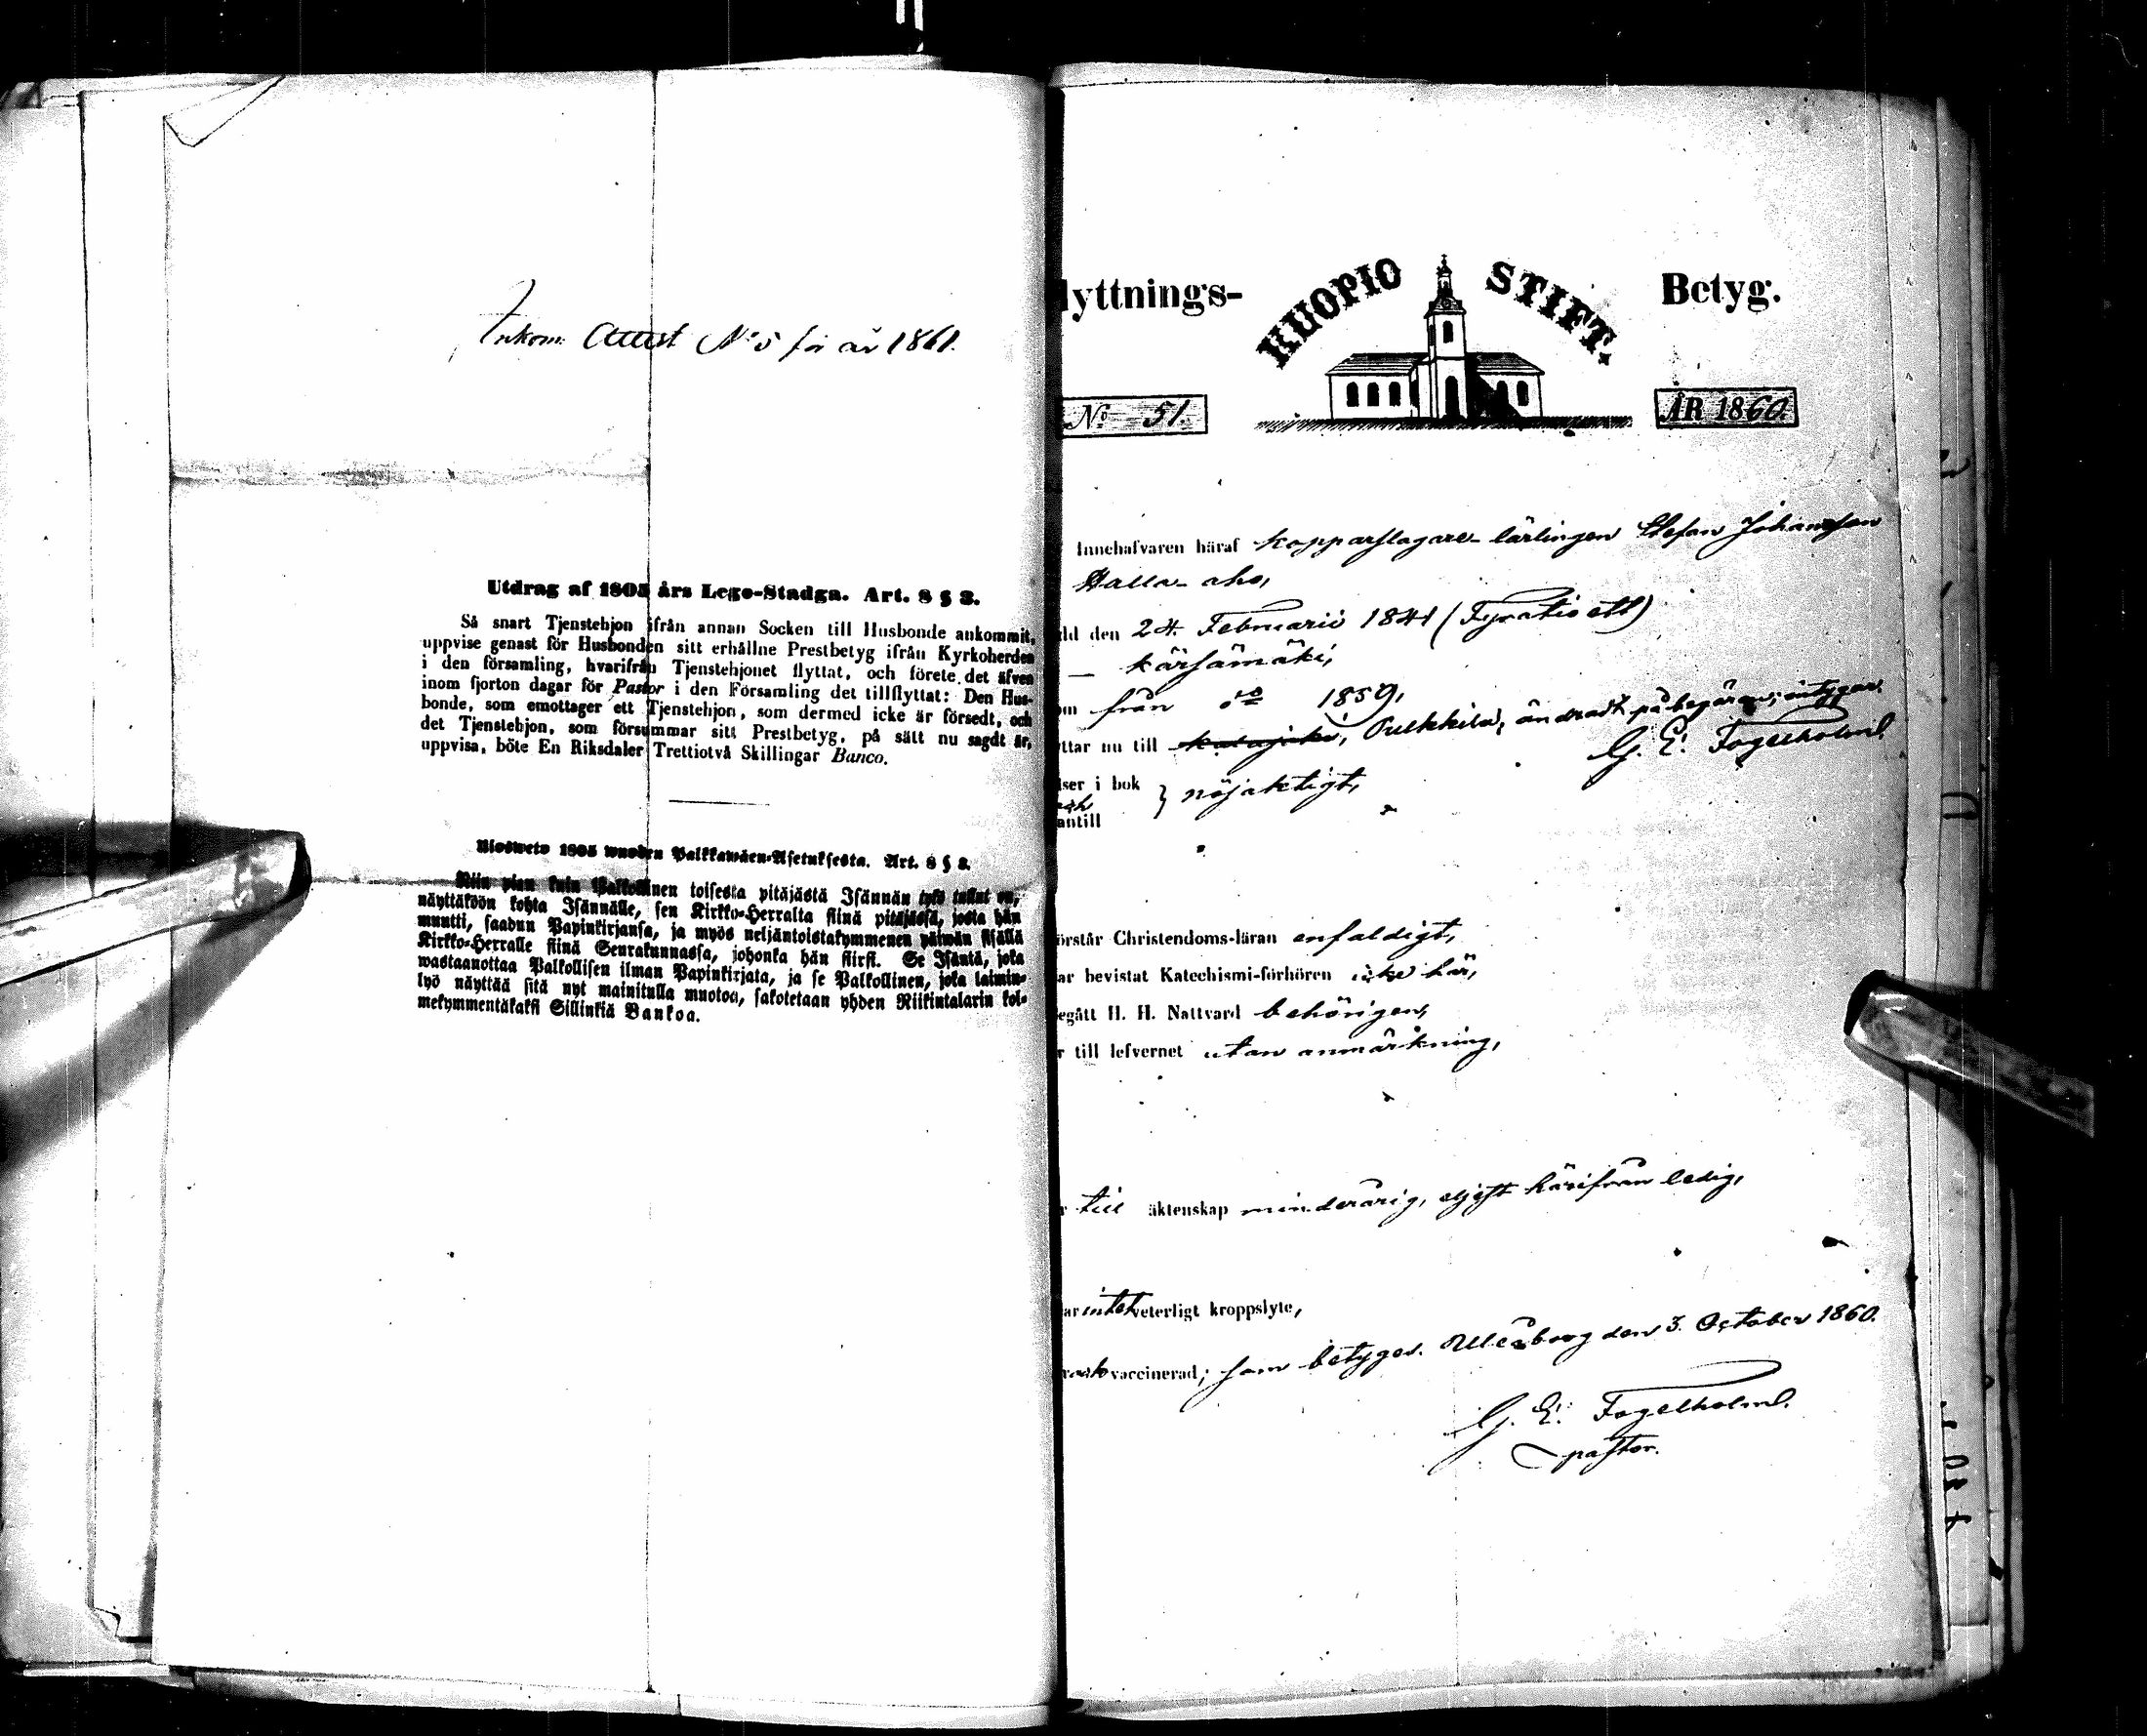 Inkom: Attest No 5 för år 1861.
Utdrag af 1805 års Lego-Stadga. Art. 8 § 3.
Så snart Tjenstehjon ifrån annan Socken till Husbonde ankommit,
uppvise genast för Husbonden sitt erhållne Prestbetyg ifrån Kyrkoherden
i den församling, hvarifrån Tjenstehjonet flyttat, och förete det äfven
inom fjorton dagar för Pastor i den Församling det tillflyttat: Den Hus-
bonde, som emottager ett Tjenstehjon, som dermed icke är försedt, och
det Tjenstehjon, som försummar sitt Prestbetyg, på sätt nu sagdt är,
uppvisa, böte En Riksdaler Trettiotvå Skillingar Banco.
Ulosweto 1805 wuoden Palkkawäen-Asetuksesta. Art. 8 § 3.
Niin pian kuin Palkollinen toisesta pitäjästä Isännän tykö tullut on,
näyttäköön kohta Isännälle, sen Kirkko-Herralta siinä pitäjässä, josta hän
muutti, saadun Papinkirjansa, ja myös neljäntoistakymmenen päiwän sisällä
Kirkko-Herralle siinä Seurakunnassa, johonka hän siirsi. Se Isäntä, joka
wastaanottaa Palkollisen ilman Papinkirjata, ja se Palkollinen, joka laimin-
lyö näyttää sitä nyt mainitulla muotoa, sakotetaan yhden Riikintalarin kol-
mekymmentäkaksi Sillinkiä Bankoa.
lyttnings- KUOPIO STIFT. Betyg.
No 51. ÅR 1860.
Innehafvaren häraf kopparslagare-lärlingen Stefan Johansson
Halla-aho,
dd den 24. Februarii 1841 (Fyratioett)
— Kärsämäki,
om från do 1859,
yttar nu till Kalajoki, Pulkkila, ändradt på begäran; intygar.
G. E. Fogelholm.
iser i bok
och } nöjaktigt,
antill
örstår Christendoms-läran enfaldigt,
ar bevistat Katechismi-förhören icke här,
egått H. H. Nattvard behörigen,
r till lefvernet utan anmärkning,
r till äktenskap minderårig, eljest härifrån ledig,
ar intet veterligt kroppslyte,
och vaccinerad; som betygar. Uleåborg den 3. October 1860.
G. E. Fogelholm.
pastor.